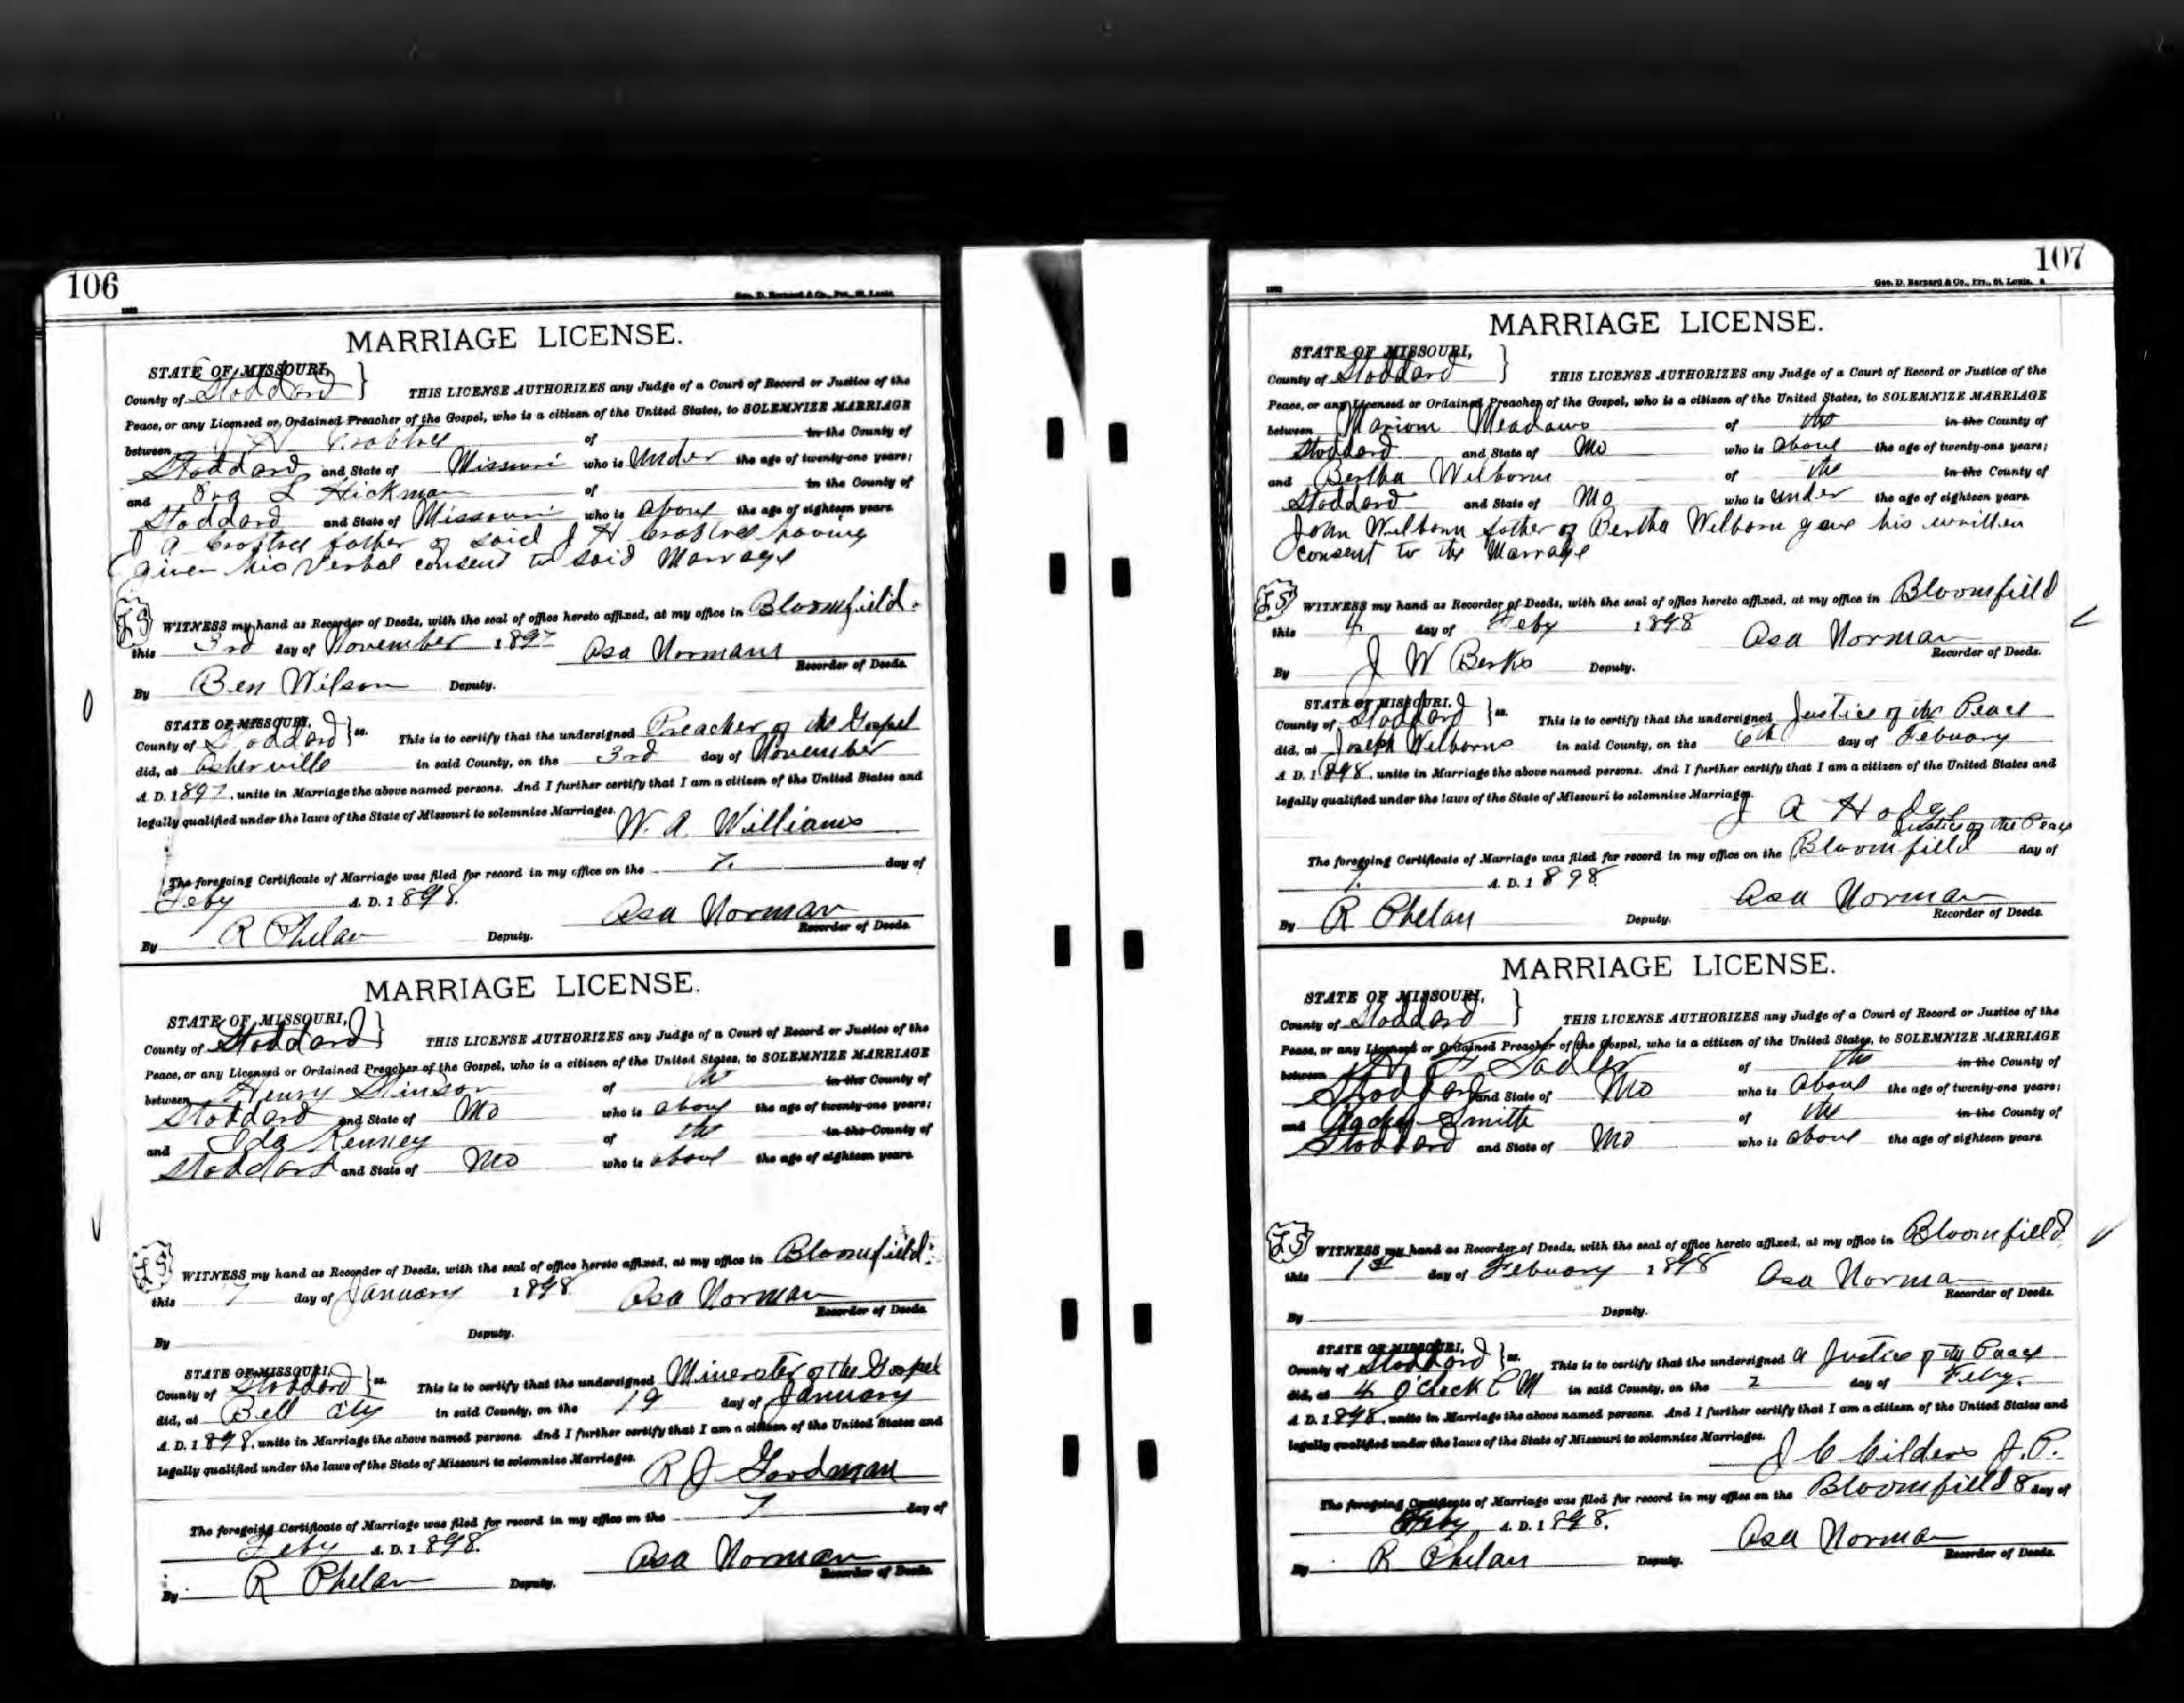 106
Geo. D. Barnard & Co., Prs., St. Louis.
MARRIAGE LICENSE.
STATE OF MISSOURI,
County of Stoddard } THIS LICENSE AUTHORIZES any Judge of a Court of Record or Justice of the
Peace, or any Licensed or Ordained Preacher of the Gospel, who is a citizen of the United States, to SOLEMNIZE MARRIAGE
between J H Crabtree of in the County of
Stoddard and State of Missouri who is Under the age of twenty-one years;
and Ora L Hickman of in the County of
Stoddard and State of Missouri who is above the age of eighteen years.
A Crabtree father of said J H Crabtree having
given his Verbal consent to said Marrage
LS WITNESS my hand as Recorder of Deeds, with the seal of office hereto affixed, at my office in Bloomfield
this 3rd day of November 1897 Asa Norman
Recorder of Deeds.
By Ben Wilson Deputy.
STATE OF MISSOURI,
County of Stoddard } ss. This is to certify that the undersigned Preacher of the Gospel
did, at Asherville in said County, on the 3rd day of November
A. D. 1897, unite in Marriage the above named persons. And I further certify that I am a citizen of the United States and
legally qualified under the laws of the State of Missouri to solemnize Marriages.
W. A. Williams
The foregoing Certificate of Marriage was filed for record in my office on the 7. day of
Feby A. D. 1898.
Asa Norman
Recorder of Deeds.
By R Phelan Deputy.
MARRIAGE LICENSE.
STATE OF MISSOURI,
County of Stoddard } THIS LICENSE AUTHORIZES any Judge of a Court of Record or Justice of the
Peace, or any Licensed or Ordained Preacher of the Gospel, who is a citizen of the United States, to SOLEMNIZE MARRIAGE
between Henry Stinson of the in the County of
Stoddard and State of Mo who is above the age of twenty-one years;
and Ida Kenney of the in the County of
Stoddard and State of Mo who is above the age of eighteen years.
LS WITNESS my hand as Recorder of Deeds, with the seal of office hereto affixed, at my office in Bloomfield
this 7 day of January 1898 Asa Norman
Recorder of Deeds.
By Deputy.
STATE OF MISSOURI,
County of Stoddard } ss. This is to certify that the undersigned Minerster of the Gospel
did, at Bell City in said County, on the 19 day of January
A. D. 1898, unite in Marriage the above named persons. And I further certify that I am a citizen of the United States and
legally qualified under the laws of the State of Missouri to solemnize Marriages.
R J Goodman
The foregoing Certificate of Marriage was filed for record in my office on the 7 day of
Feby A. D. 1898.
Asa Norman
Recorder of Deeds.
By R Phelan Deputy.
107
Geo. D. Barnard & Co., Prs., St. Louis.
MARRIAGE LICENSE.
STATE OF MISSOURI,
County of Stoddard } THIS LICENSE AUTHORIZES any Judge of a Court of Record or Justice of the
Peace, or any Licensed or Ordained Preacher of the Gospel, who is a citizen of the United States, to SOLEMNIZE MARRIAGE
between Marion Meadows of the in the County of
Stoddard and State of Mo who is above the age of twenty-one years;
and Bertha Welborn of the in the County of
Stoddard and State of Mo who is under the age of eighteen years.
John Welborn father of Bertha Welborn gave his written
consent to the Marrage
LS WITNESS my hand as Recorder of Deeds, with the seal of office hereto affixed, at my office in Bloomfield
this 4 day of Feby 1898 Asa Norman
Recorder of Deeds.
By J W Berks Deputy.
STATE OF MISSOURI,
County of Stoddard } ss. This is to certify that the undersigned Justice of the Peace
did, at Joseph Welborns in said County, on the 6th day of Febuary
A. D. 1898, unite in Marriage the above named persons. And I further certify that I am a citizen of the United States and
legally qualified under the laws of the State of Missouri to solemnize Marriages.
J A Hodge
Justice of the Peace
The foregoing Certificate of Marriage was filed for record in my office on the Bloomfield day of
7. A. D. 1898.
Asa Norman
Recorder of Deeds.
By R Phelan Deputy.
MARRIAGE LICENSE.
STATE OF MISSOURI,
County of Stoddard } THIS LICENSE AUTHORIZES any Judge of a Court of Record or Justice of the
Peace, or any Licensed or Ordained Preacher of the Gospel, who is a citizen of the United States, to SOLEMNIZE MARRIAGE
between F Sadler of the in the County of
Stoddard and State of Mo who is above the age of twenty-one years;
and Smith of the in the County of
Stoddard and State of Mo who is above the age of eighteen years.
LS WITNESS my hand as Recorder of Deeds, with the seal of office hereto affixed, at my office in Bloomfield
this 1st day of Febuary 1898 Asa Norman
Recorder of Deeds.
By Deputy.
STATE OF MISSOURI,
County of Stoddard } ss. This is to certify that the undersigned A Justice of the Peace
did, at 4 O'Clock P M in said County, on the 2 day of Feby.
A. D. 1898, unite in Marriage the above named persons. And I further certify that I am a citizen of the United States and
legally qualified under the laws of the State of Missouri to solemnize Marriages.
J C Cilders J. P.
The foregoing Certificate of Marriage was filed for record in my office on the Bloomfield 8 day of
Feby A. D. 1898.
Asa Norman
Recorder of Deeds.
By R Phelan Deputy.